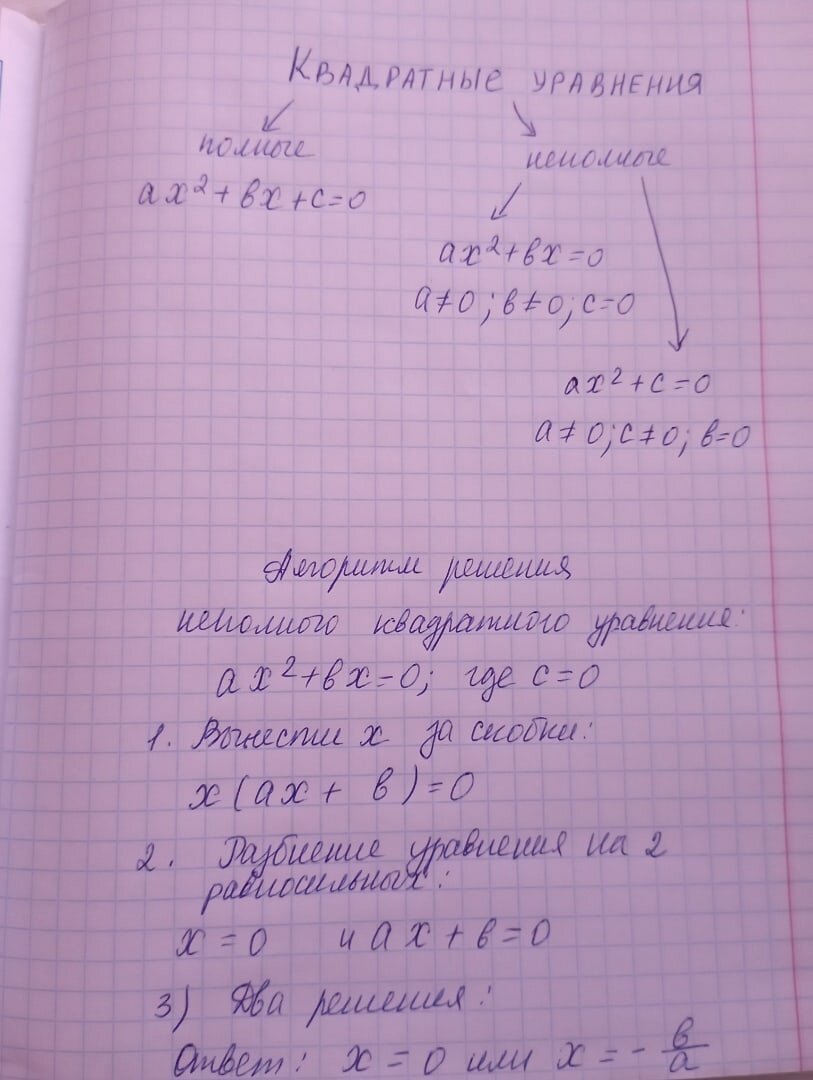 КВАДРАТНЫЕ УРАВНЕНИЯ
полные
неполные
ax²+вx+c=0
ax²+вx=0
a≠0; в≠0; c=0
ax²+c=0
a≠0; c≠0; в=0
Алгоритм решения
неполного квадратного уравнения:
ax²+вx=0; где c=0
1. Вынести x за скобки:
x(ax+в)=0
2. Разбиение уравнения на 2
равносильных:
x=0 и ax+в=0
3) Два решения:
Ответ: x=0 или x=-в/a